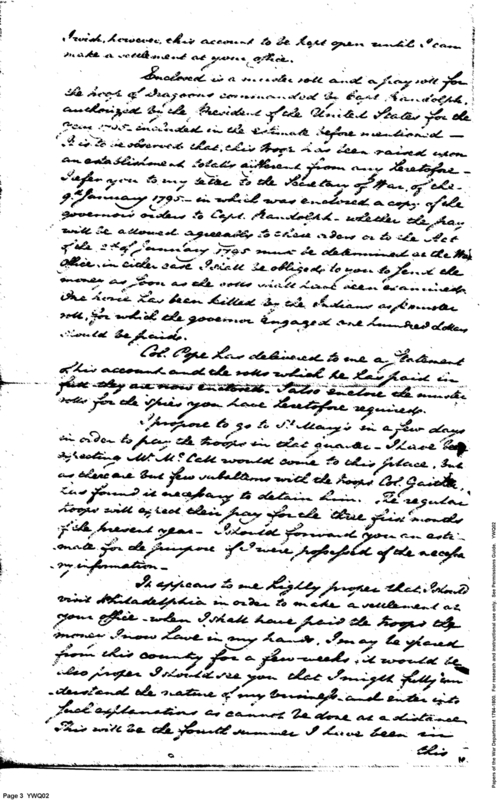 I wish, however, this account to be kept open until I can
make a settlement at your office.
Enclosed is a muster roll and a pay roll for
the troop of Dragoons commanded by Capt. Randolph,
authorized by the President of the United States for the
year 1795. included in the estimate before mentioned —
It is to be observed that, this troop has been raised upon
an establishment totally different from any heretofore —
I refer you to my letter to the Secretary of War, of the
9th January 1795 — in which was enclosed a copy of the
governors orders to Capt. Randolph — whether the pay
will be allowed agreeably to those orders or to the Act
of the 2d of January 1795 must be determined at the War
Office, in either case I shall be obliged to you to send the
money as soon as the rolls shall have been examined.
One horse has been killed by the Indians as p muster
roll, for which the governor engaged one hundred dollars
should be paid.
Col. Pope has delivered to me a Statement
of his account and the rolls which he has paid in
full they are now enclosed. I also enclose the muster
rolls for the Spies you have heretofore required.
I propose to go to St. Mary's in a few days
in order to pay the troops in that quarter — I have been
expecting Mr. McCall would come to this place, but
as there are but few subalterns with the troops Col. Gaither
has found it necessary to detain him. The regular
troops will expect their pay for the three first months
of the present year — I should forward you an esti-
mate for the purpose if I were possessed of the necessa
ry information —
It appears to me highly proper that, I should
visit Philadelphia in order to make a settlement at
your office — when I shall have paid the troops the
money I now have in my hands, I may be spared
from this country for a few weeks, it would be
also proper I should see you that I might fully un-
derstand the nature of my business and enter into
such explanations as cannot be done at a distance
This will be the fourth summer I have been in
this
Page 3 YWQ02
Papers of the War Department 1784-1800. For research and instructional use only. See Permissions Guide. YWQ02